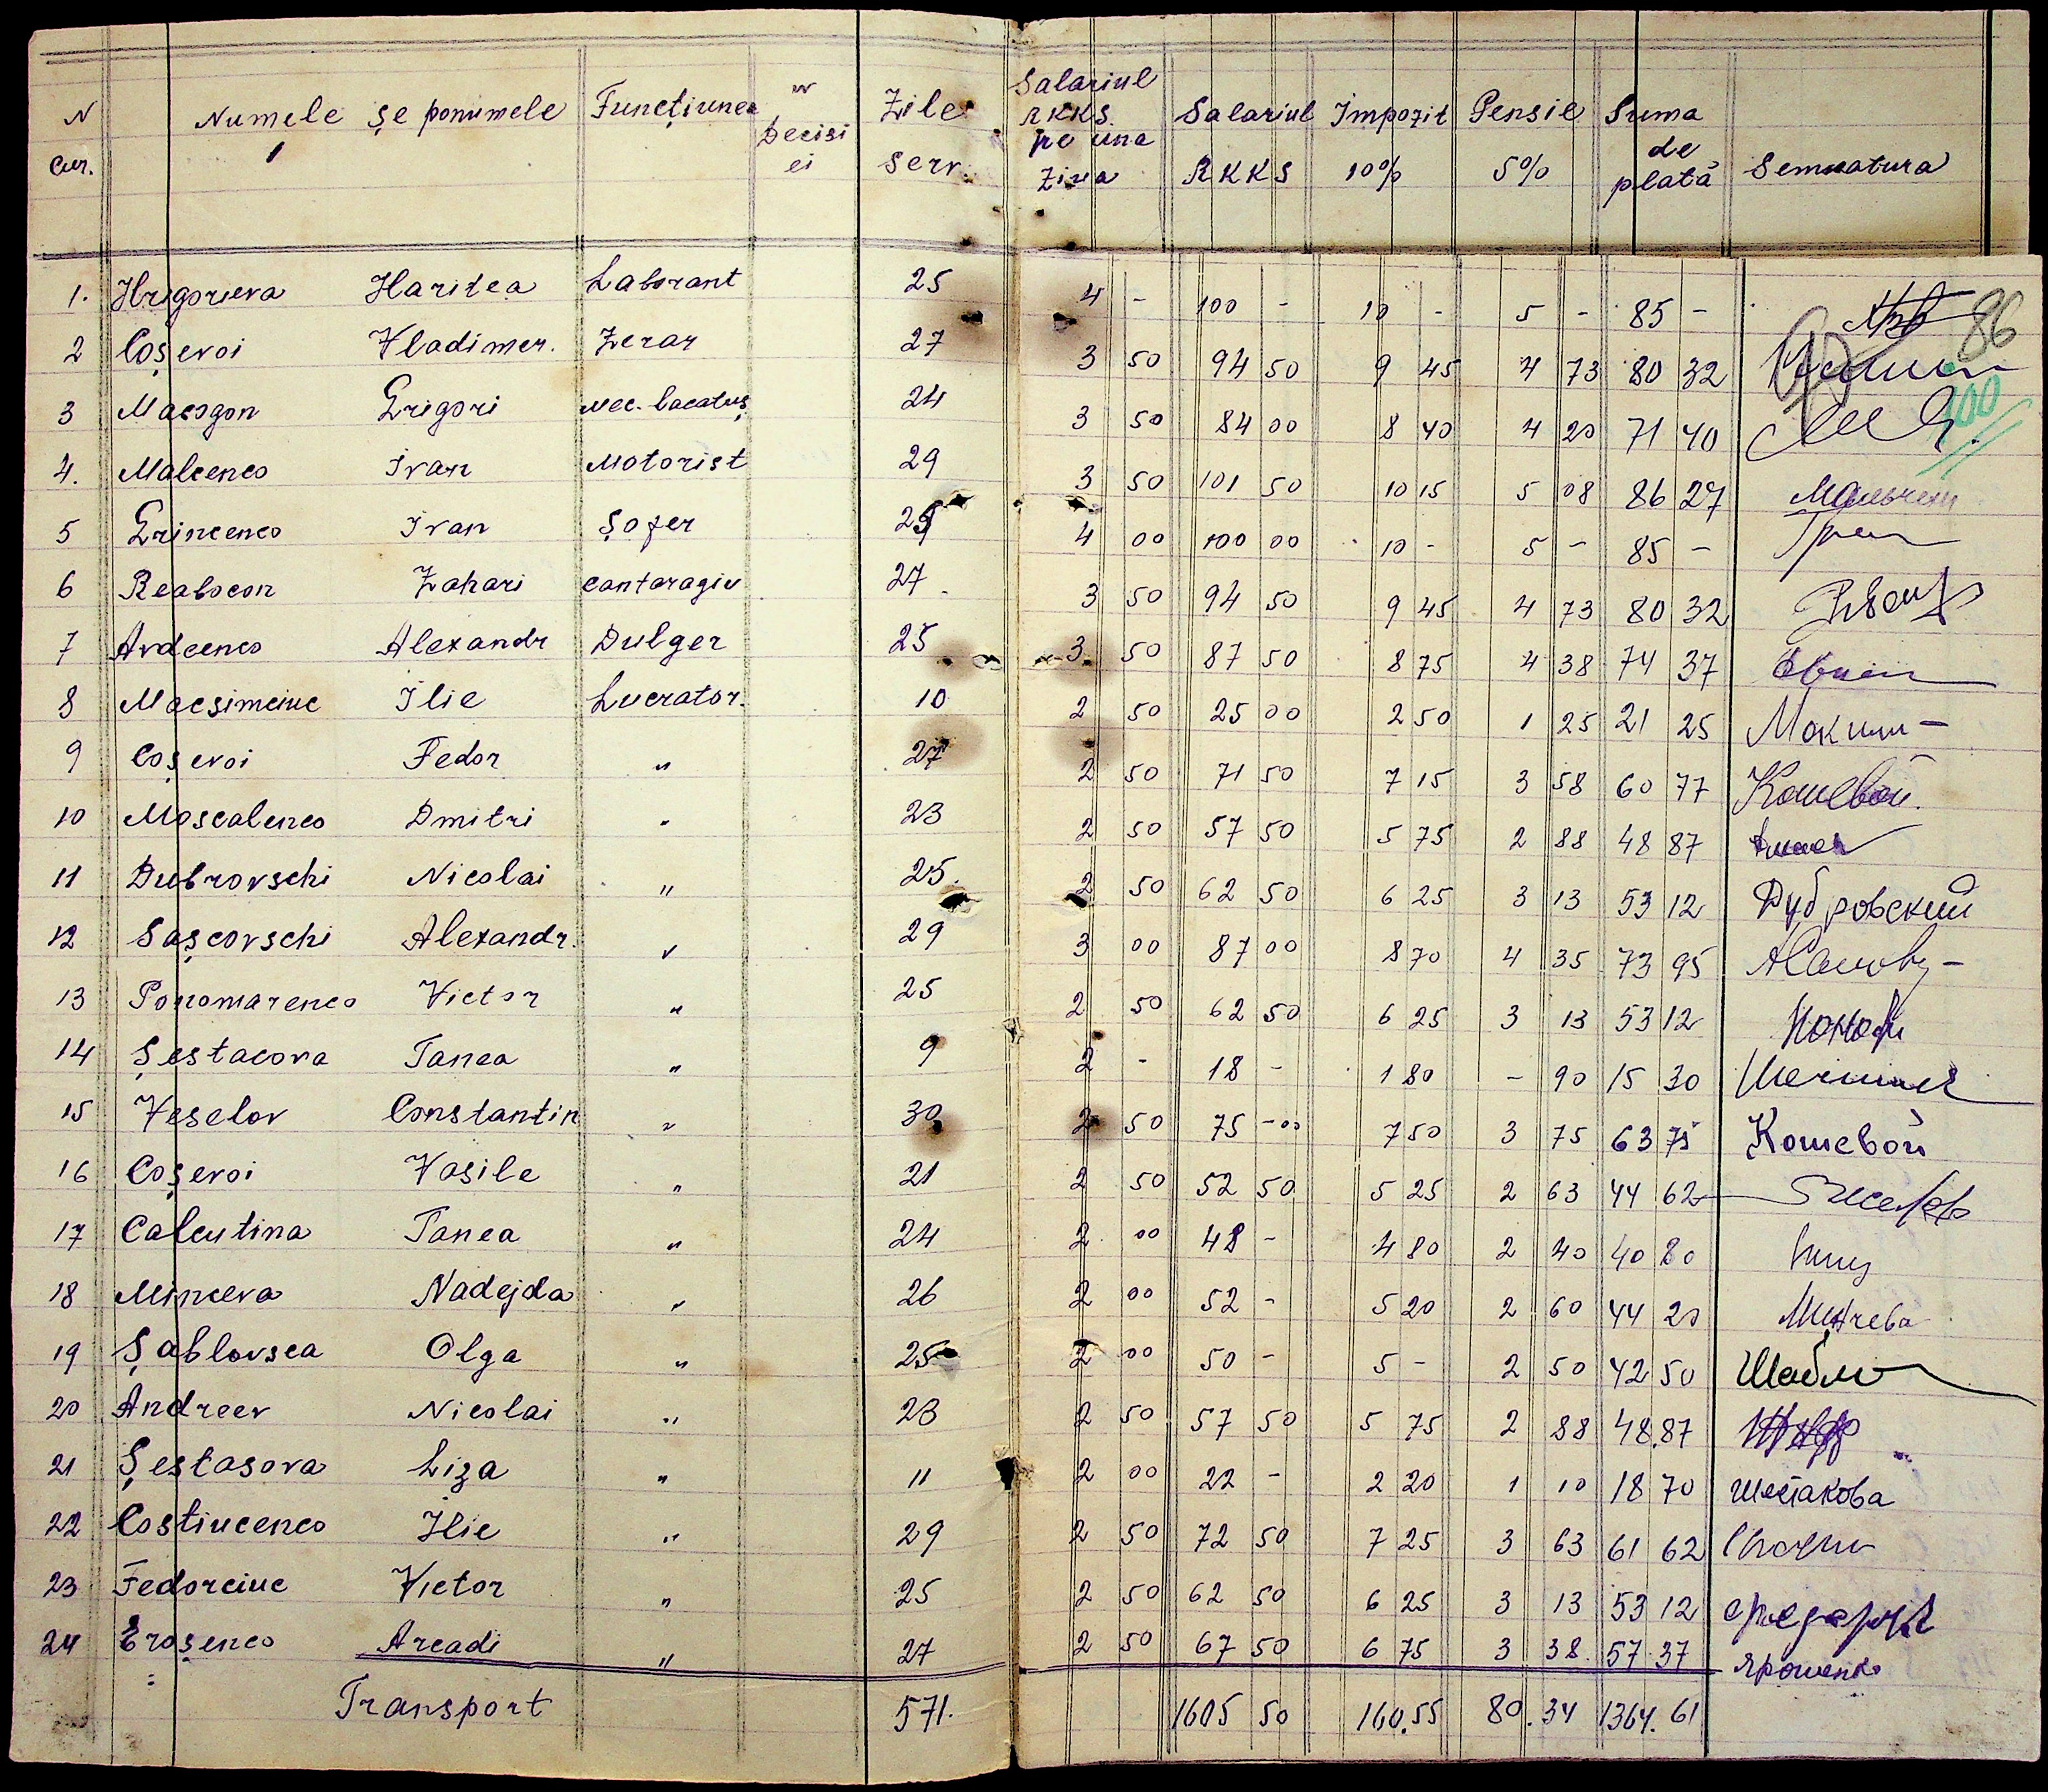 N cur. Numele şe ponumele Funcţiunea N Decisiei Zile serv. Salariul RKKS. pe una Ziua Salariul RKKS Impozit 10% Pensie 5% Suma de plată Semnatura
86
100
1. Hrigorieva Haritea Laborant 25 4 - 100 - 10 - 5 - 85 -
2 Coşevoi Vladimer. Zerar 27 3 50 94 50 9 45 4 73 80 32
3 Macogon Grigori Mec. lacatuş 24 3 50 84 00 8 40 4 20 71 40
4. Malcenco Ivan Motorist 29 3 50 101 50 10 15 5 08 86 27
5 Grincenco Ivan Şofer 25 4 00 100 00 10 - 5 - 85 -
6 Reabocon Zahari cantaragiu 27 3 50 94 50 9 45 4 73 80 32
7 Avdeenco Alexandr Dulger 25 3 50 87 50 8 75 4 38 74 37
8 Macsimciuc Ilie Lucrator. 10 2 50 25 00 2 50 1 25 21 25 Максим-
9 Coşevoi Fedor " 27 2 50 71 50 7 15 3 58 60 77 Кошевой
10 Moscalenco Dmitri " 23 2 50 57 50 5 75 2 88 48 87
11 Dubrovschi Nicolai " 25. 2 50 62 50 6 25 3 13 53 12 Дубровский
12 Saşcovschi Alexandr. " 29 3 00 87 00 8 70 4 35 73 95
13 Ponomarenco Victor " 25 2 50 62 50 6 25 3 13 53 12
14 Şestacova Tanea " 9 2 - 18 - 1 80 - 90 15 30
15 Veselov Constantin " 30 2 50 75 -00 7 50 3 75 63 75 Кошевой
16 Coşevoi Vasile " 21 2 50 52 50 5 25 2 63 44 62
17 Calcutina Tanea " 24 2 00 48 - 4 80 2 40 40 80
18 Minceva Nadejda " 26 2 00 52 - 5 20 2 60 44 20 Минчева
19 Şablovsca Olga " 25 2 00 50 - 5 - 2 50 42 50 Шабло
20 Andreev Nicolai " 23 2 50 57 50 5 75 2 88 48.87
21 Şestasova Liza " 11 2 00 22 - 2 20 1 10 18 70 Шестакова
22 Costiucenco Ilie " 29 2 50 72 50 7 25 3 63 61 62
23 Fedorciuc Victor " 25 2 50 62 50 6 25 3 13 53 12
24 Eroşenco Arcadi " 27 2 50 67 50 6 75 3 38. 57 37 Ярошенко
Transport 571. 1605 50 160.55 80.34 1364.61